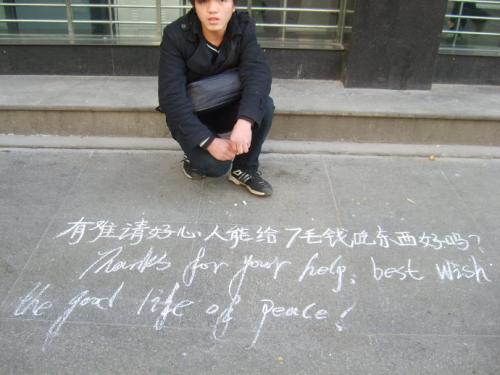 有难请好心人能给7毛钱吃东西好吗?
Thanks for your help, best wish
the good life of peace!